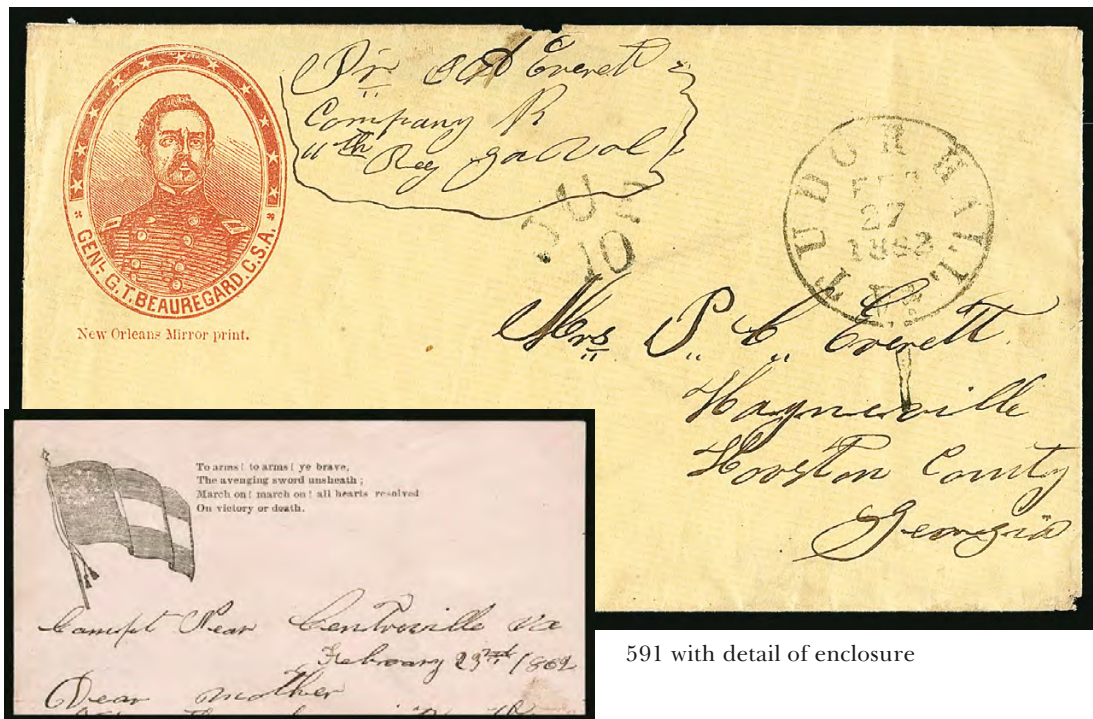 GENL. G. T. BEAUREGARD. C.S.A.
New Orleans Mirror print.
Pr. Everett
Company
11th Reg Ga Vol
DUE
10
TUDOR HALL
FEB
27
1862
Va.
Mrs. P. C. Everett
Hayneville
Houston County
Georgia
To arms! to arms! ye brave,
The avenging sword unsheath;
March on! march on! all hearts resolved
On victory or death.
Campt Near Centreville Va
February 23rd 1862
Dear mother
591 with detail of enclosure